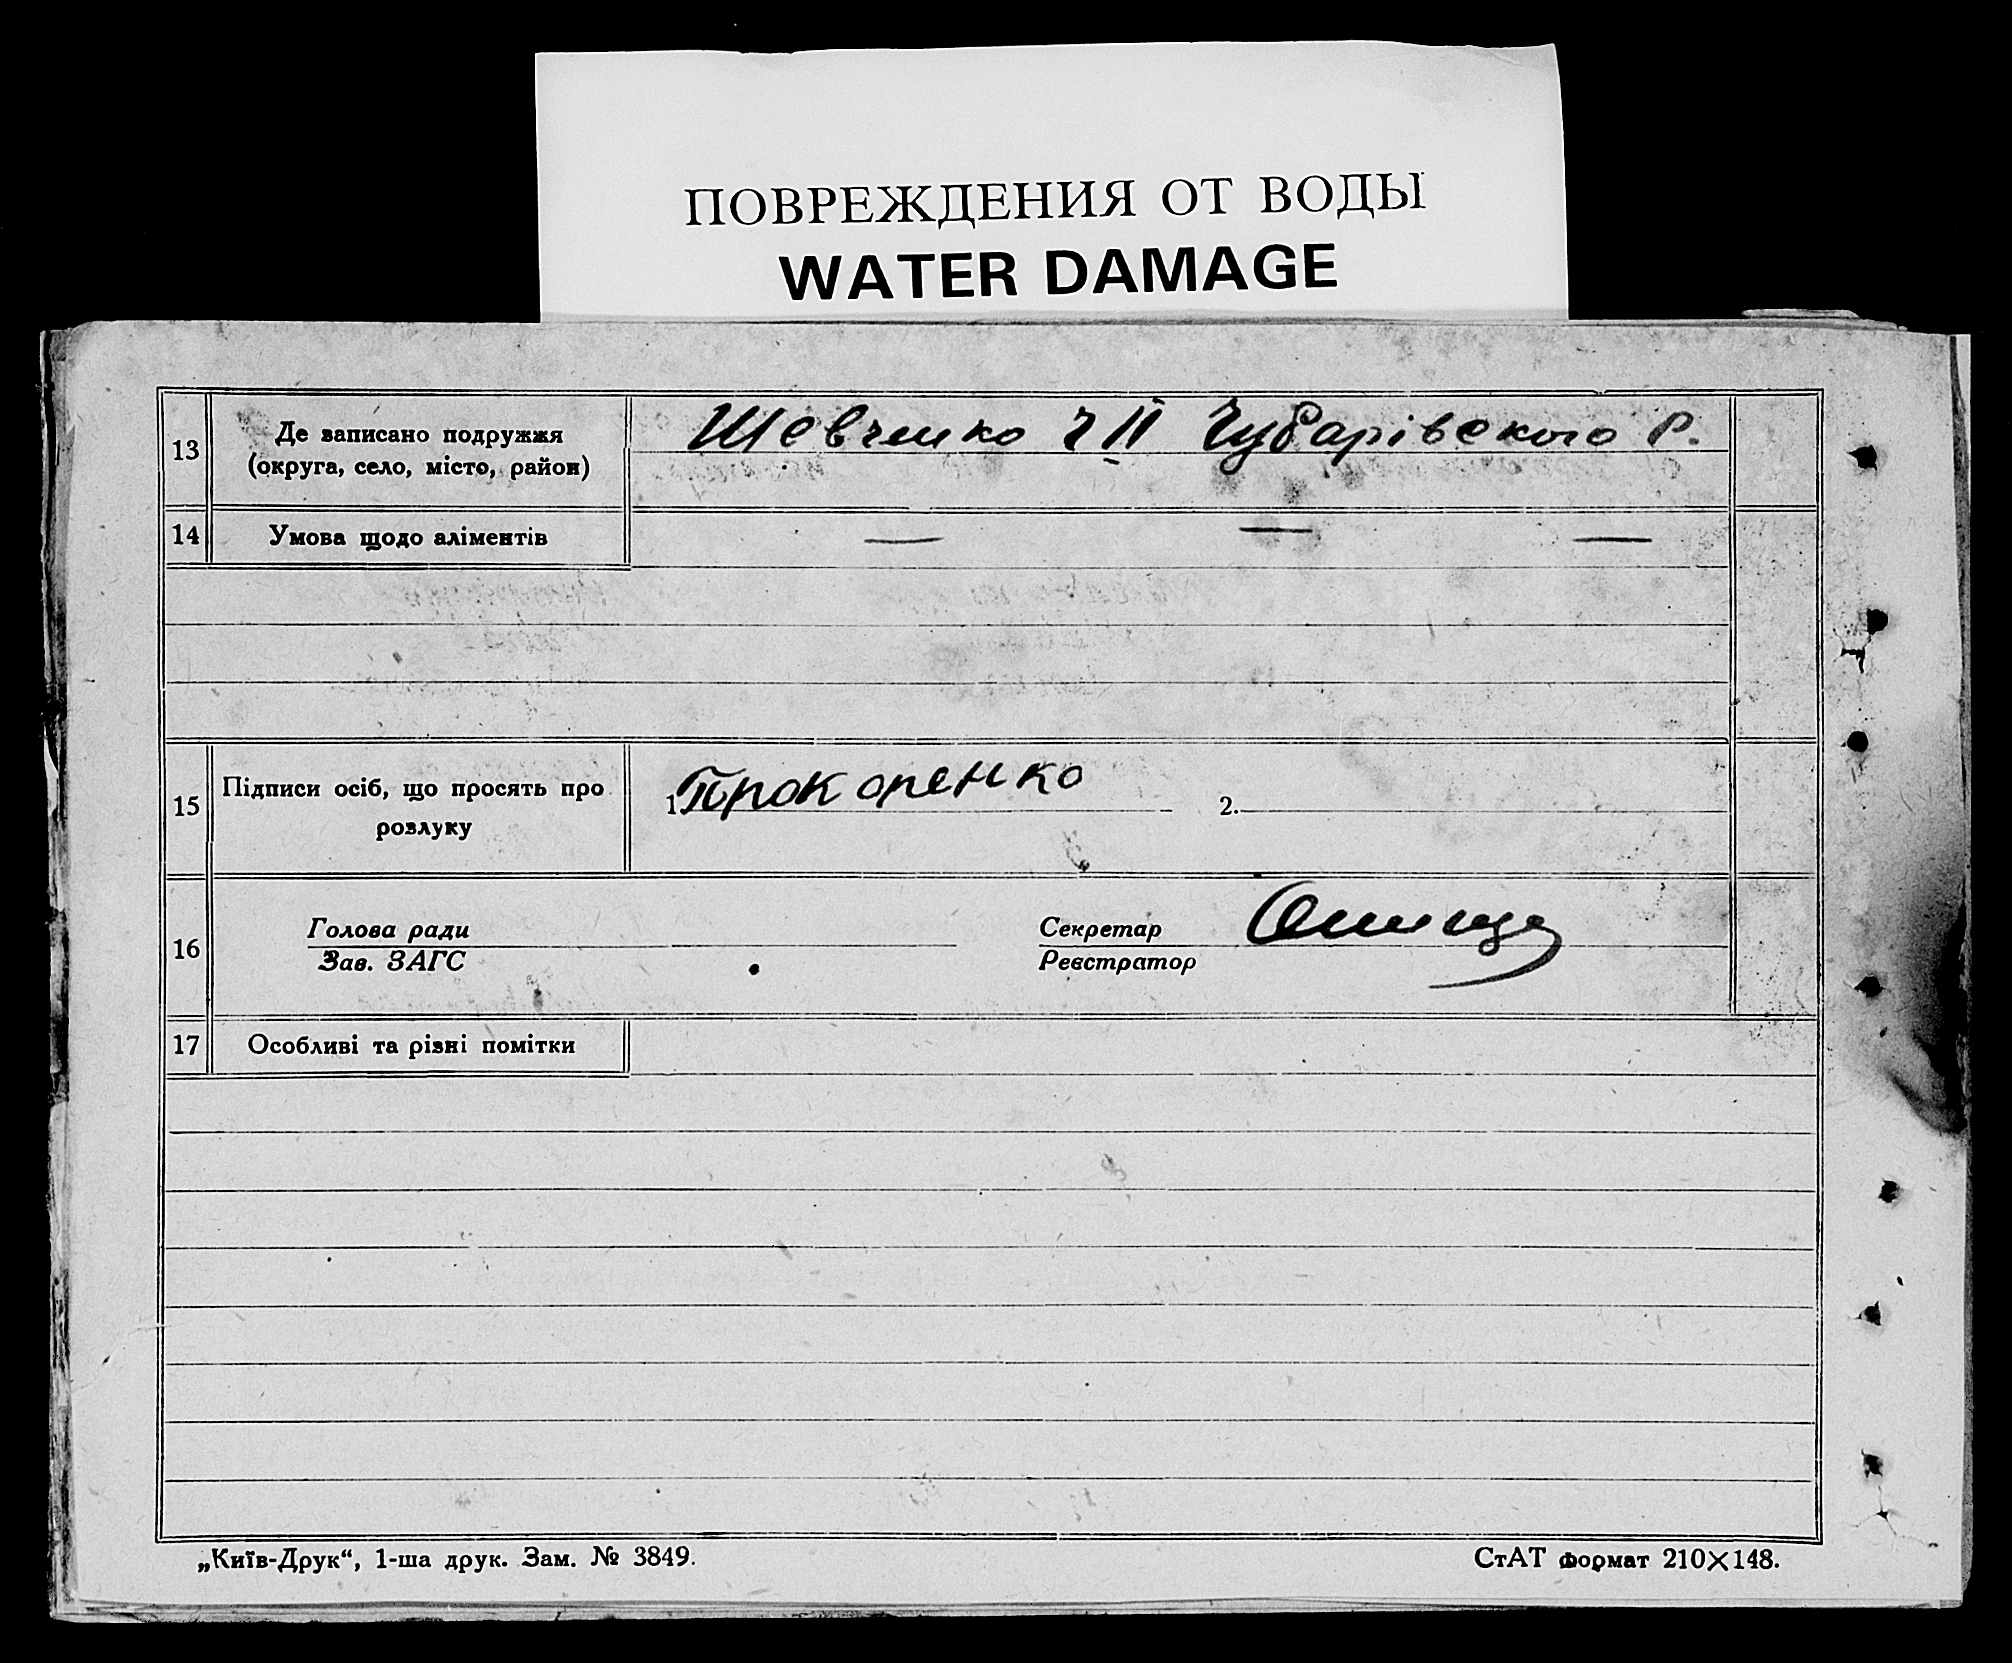 ПОВРЕЖДЕНИЯ ОТ ВОДЫ
WATER DAMAGE
13 Де записано подружжя (округа, село, місто, район) Шевченко ч II Чубарівського р.
14 Умова щодо аліментів — — —
15 Підписи осіб, що просять про розлуку 1. Прокопенко 2.
16 Голова ради Секретар
Зав. ЗАГС Реєстратор
17 Особливі та різні помітки
„Київ-Друк“, 1-ша друк. Зам. № 3849. СтАТ формат 210×148.